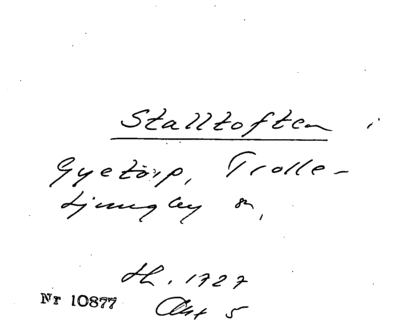 Stalltoften i
Gyetorp, Trolle-
Ljungby sn,
H. 1727
Nr 10877 Akt 5